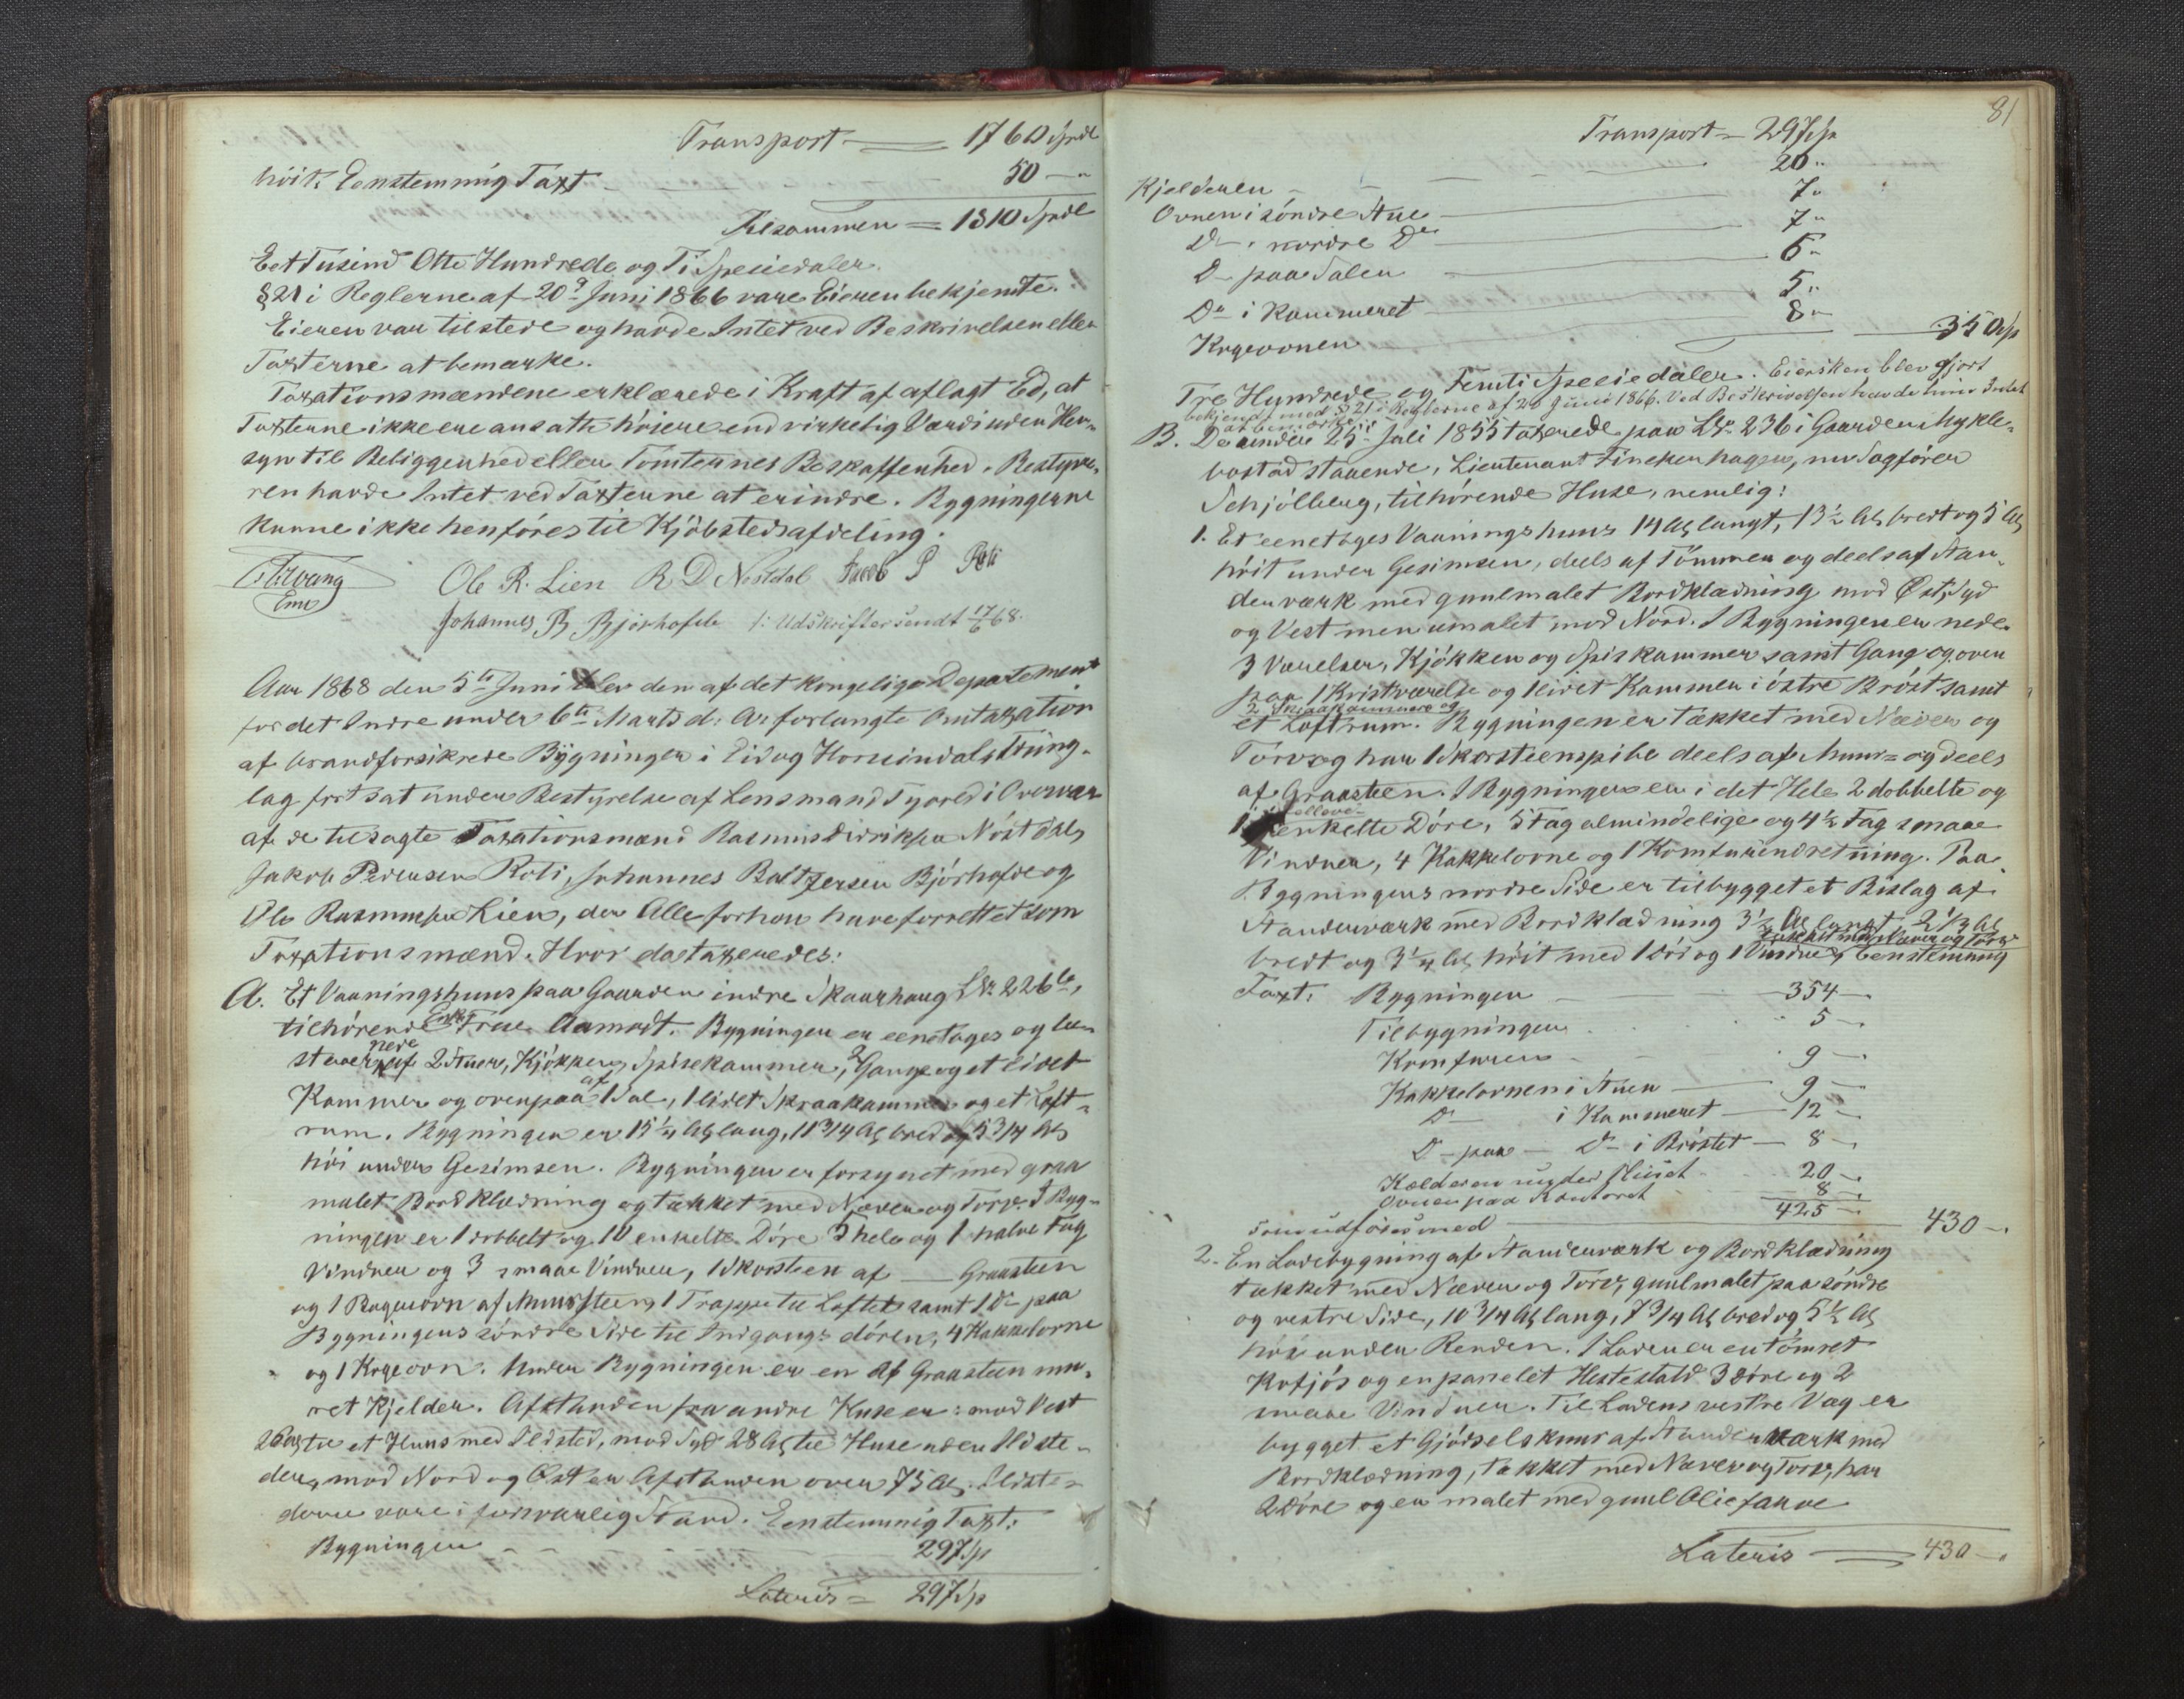 Transport = 1760 Spdl
höit. Eenstemmig Taxt - - - 50 - "
Tilsammen = 1810 Spdl
Eet Tusind Otte Hundrede og Ti Speciedaler.
§21 i Reglerne af 20de Juni 1866 vare Eieren bekjendte.
Eieren var tilstede og havde Intet ved Beskrivelsen eller
Taxterne at bemærke.
Taxationsmændene erklærede i Kraft af aflagt Ed, at
Taxterne ikke ere ansatte höiere end virkelig Værdi uden Hen-
syn til Beliggenhed eller Tomternes Beskaffenhed. Bestyre-
ren havde Intet ved Taxterne at erindre. Bygningerne
kunne ikke henföres til Kjöbstedsafdeling.
Ole R. Lien R D Nestdal Jacob P Roti
Johannes B Bjørhofde /: Udskrifter sendt 17/6 68.
Aar 1868 den 5te Juni blev den af det kongelige Departement
for det Indre under 6te Marts d. Ar forlangte Omtaxation
af brandforsikrede Bygninger i Eid og Hornindals Thing-
lag fortsat under Bestyrelse af Lensmand i Overvær
af de tilsagte Taxationsmænd Rasmus Didriksen Nöstdal,
Jakob Pedersen Roti, Johannes Baltzersen Bjørhofde og
Ole Rasmussen Lien, der Alle forhen have forrettet som
Taxationsmænd. Hvor da taxeredes:
A. Et Vaaningshuus paa Gaarden indre Skaarhaug LNr 226b,
tilhörende Enke Frue Aamodt. Bygningen er eenetages og be-
staaer nede af 2 Stuer, Kjökken, Spisekammer, 2 Gange og et lidet
Kammer og ovenpaa af 1 Sal, 1 lidet Skraakammer og et Loft-
rum. Bygningen er 15 1/4 Al lang, 11 3/4 Al bred og 5 3/4 Al
höi under Gesimsen. Bygningen er forsynet med graa
malet Bordklædning og tækket med Næver og Torv. I Byg-
ningen er 1 dobbelt og 10 enkelte Döre 5 hele og 1 halve Fag
Vinduer og 3 smaae Vinduer, 1 Skorsteen af — Graasteen
og 1 Bagerovn af Muursteen, 1 Trappe til Loftet samt 1 Do paa
Bygningens söndre Side til Indgangsdören, 4 Kakkelovne
og 1 Kogeovn. Under Bygningen er en af Graasteen mu-
ret Kjelder. Afstanden fra andre Huse er: mod Vest
26 Al til et Huus med Ildsted, mod Syd 28 Al til Huse uden Ildste-
der, mod Nord og Öst er Afstanden over 75 Al. Ildste-
derne vare i forsvarlig Stand. Eenstemmig Taxt:
Bygningen - - 297 Sp
Lateris = 297 Sp
81
Transport = 297 Sp
Kjelderen - - - 20 "
Ovnen i söndre Stue 7 "
Do i nordre Do 7 "
Do paa Salen 6 "
Do i Kammeret 5 "
Kogeovnen 8 " 350 Sp
Tre Hundrede og Femti Speciedaler. Eiersken blev gjort
bekjendt med §21 i Reglerne af 20 Juni 1866. Ved Beskrivelsen havde hun Intet
at bemærke.
B. De under 25de Juli 1855 taxerede paa LNr 236 i Gaarden Mykle-
bostad staaende, Lieutenant Finckenhagen, nu Sagförer
Schjölberg, tilhörende Huse, nemlig:
1. Et eenetages Vaaningshuus 14 Al langt, 13 1/2 Al bredt og 5 Al
höit under Gesimsen, deels af Tömmer og deels af Stan-
derværk med guulmalet Bordklædning mod Öst, Syd
og Vest men umalet mod Nord. I Bygningen er nede
3 Værelser, Kjökken og Spiskammer samt Gang og oven
paa 1 Kvistværelse og 1 lidet Kammer i östre Bröst samt
2 Skraakammere og
et Loftrum. Bygningen er tækket med Næver og
Torv og har 1 Skorsteenspibe deels af Muur- og deels
af Graasteen. I Bygningen er i det Hele 2 dobbelte og
elleve
enkelte Döre, 5 Fag almindelige og 4 1/2 Fag smaae
Vinduer, 4 Kakkelovne og 1 Komfurindretning. Paa
Bygningens nordre Side er tilbygget et Bislag af
Standerværk med Bordklædning 3 1/2 Al langt 2 1/3 Al
tækket med Næver og Torv
bredt og 3 1/4 Al höit med 1 Dör og 1 Vindue, Eenstemmig
Taxt: Bygningen 354 - "
Tilbygningen 5 - "
Komfuren 9 - "
Kakkelovnen i Stuen 9 - "
Do i Kammeret 12 - "
Do paa Do i Bröstet 8 - "
Kælderen under Huset 20 - "
Ovnen paa Kontoret 8 - "
425 - "
som udföres med 430 - "
2. En Ladebygning af Standerværk og Bordklædning
tækket med Næver og Torv, guulmalet paa söndre
og vestre Side, 10 3/4 Al lang, 7 3/4 Al bred og 5 1/2 Al
höi under Renden. I Laden er en tömret
Kofjös og en panelet Hestestald 3 Döre og 2
smaae Vinduer. Til Ladens vestre Væg er
bygget et Gjödselskuur af Standerværk med
Bordklædning, tækket med Næver og Torv, har
2 Döre og er malet med guul Oliefarve
Lateris = 430 - "